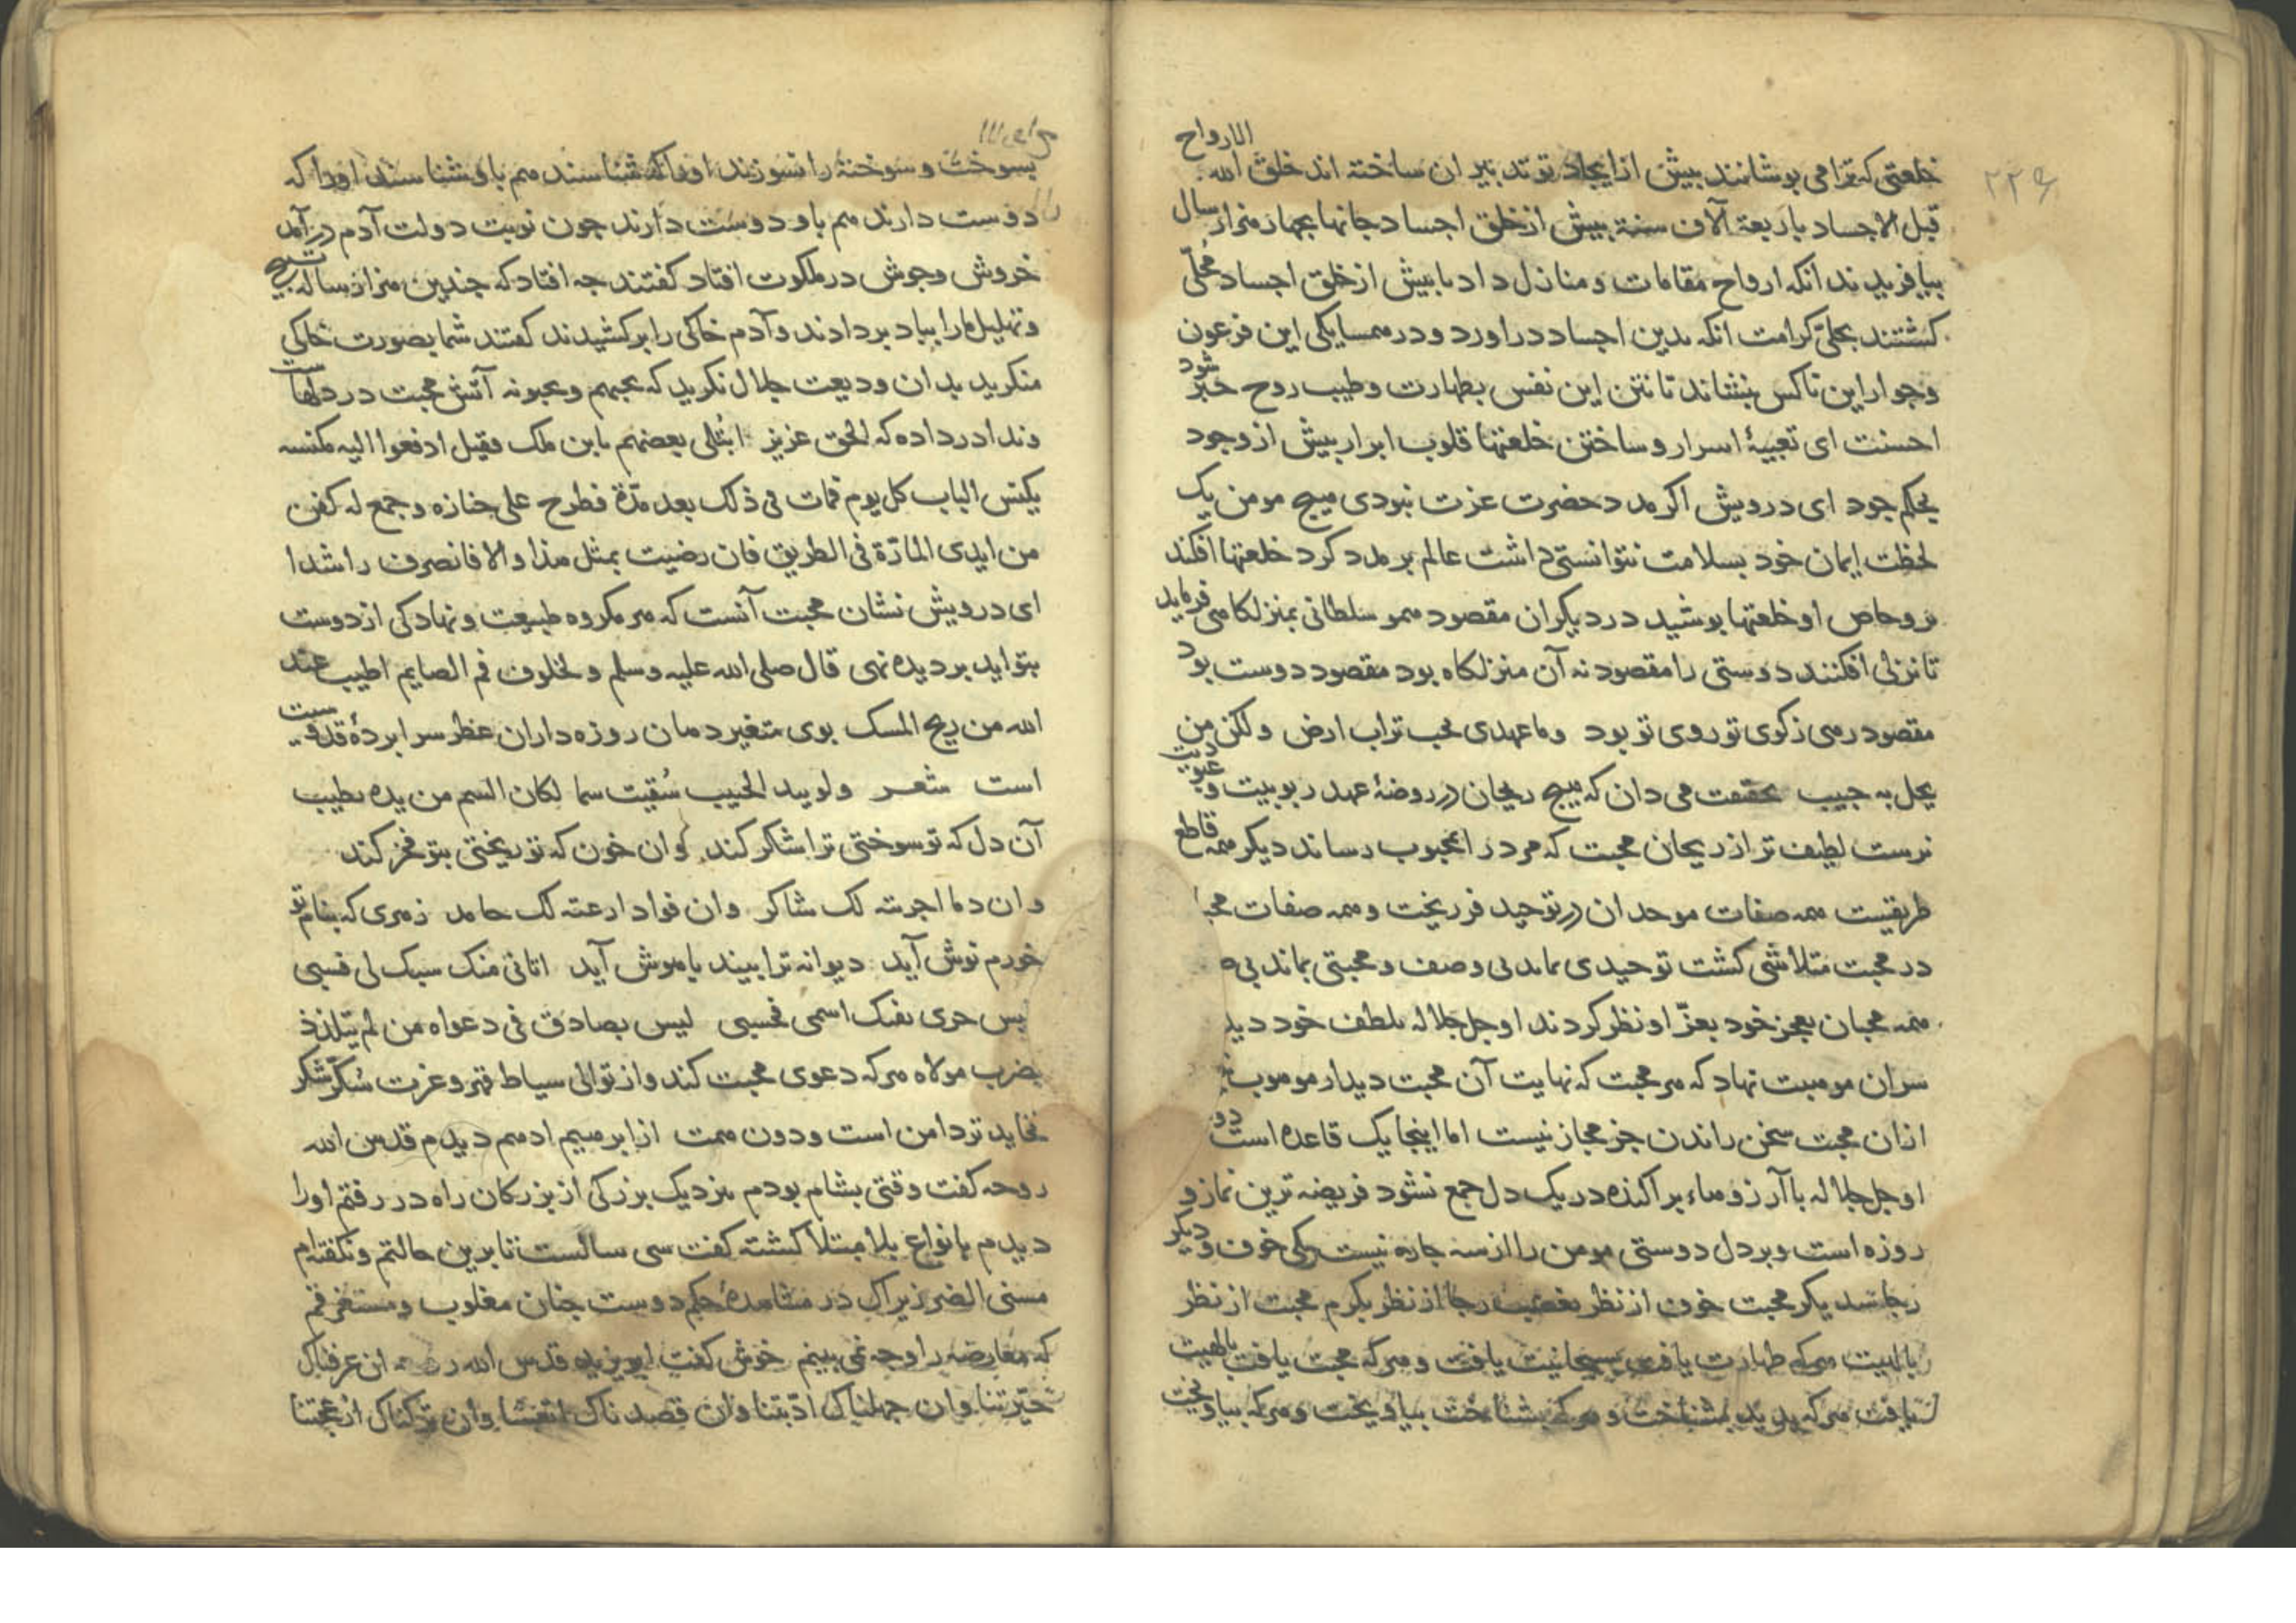 ۲۲۶
خلعتی که ترا می بوشانند بیش از ایجاد تو تدبیر ان ساخته اند خلق الله الارواح
قبل الاجساد باربعة آلاف سنة بیش از خلق اجساد جانها بجهار هزار سال
بیافریدند انکه ارواح مقامات و منازل داد بابیش از خلق اجساد محلّی
کشتند بحلیّ کرامت انکه بدین اجساد دراورد و در همسایکی این فرعون
وجوار این ناکس بنشاند تا نتن این نفس بطهارت وطیب روح خبر شود
احسنت ای تعبیهٔ اسرار و ساختن خلعتها قلوب ابرار بیش از وجود
بحکم جود ای درویش اکر مدد حضرت عزت نبودی هیچ مومن یک
لحظت ایمان خود بسلامت نتوانستی داشت عالم بر مدد کرد خلعتها افکند
او خلعتها بوشید در دیکران مقصود همو سلطانی بمنزلکاهی فرماید
تا نزلی افکنند دوستی را مقصود نه آن منزلکاه بود مقصود دوست بود
مقصود رهی زکوی تو روی تو بود وما عهدی بحب تراب ارض ولکن من
یحل به حبیب بحقیقت می دان که هیچ ریحان در روضهٔ عهد ربوبیت و عبودیت
نرست لطیف تر از ریحان محبت که مرد را بمحبوب رساند دیکر همه قاطع
طریقیست همه صفات موحدان در توحید فرو ریخت وهمه صفات
در محبت متلاشی کشت توحیدی ماند بی وصف و محبتی بماند
همه محبان بعجز خود بعزّ او نظر کردند او جل جلاله بلطف خود
سران موهبت نهاد که هر محبت که نهایت آن محبت دیدار موهوب
ازان محبت سخن راندن جز مجاز نیست اما اینجا یک قاعده است
او جل جلاله با آرزوهاء براکنده در یک دل جمع نشود فریضه ترین نماز و
روزه است وبر دل دوستی مومن را از سه جاره نیست یکی خوف و دیکر
رجا سدیکر محبت خوف از نظر بغضب رجا از نظر بکرم محبت از نظر
بالهیت هرکه طهارت یافت یافت و هرکه محبت یافت بالهیت
یافت هرکه بدید بشناخت و هرکه بشناخت بیاویخت و هرکه بیاویخت
بسوخت و سوخته را نسوزند اورا که شناسند هم باو شناسند اورا که
دوست دارند هم باو دوست دارند جون نوبت دولت آدم درآمد
خروش وجوش در ملکوت افتاد کفتند جه افتاد که چندین هزار ساله تسبیح
وتهلیل مارا بباد بردادند وآدم خاکی را برکشیدند کفتند شما بصورت خاکی
منکرید بدان ودیعت جلال نکرید که یحبهم ویحبونه آتش محبت در دلهاست
وندا درداده که الحق عزیز ابتلی بعضهم بابن ملک فقیل ادفعوا الیه مکنسه
یکنس الباب کل یوم فمات فی ذلک بعد مدّة فطرح علی جنازه وجمع له کفن
من ایدی المارّة فی الطریق فان رضیت بمثل هذا والا فانصرف راشدا
ای درویش نشان محبت آنست که هر مکروه طبیعت ونهاد کی از دوست
بتو اید بر دیده نهی قال صلی الله علیه وسلم ولخلوف فم الصایم اطیب عند
الله من ریح المسک بوی متغیر دهان روزه داران عطر سرابردهٔ قدوسیت
است شعر ولو بید الحبیب سُقیت سما لکان السم من یده یطیب
آن دل که تو سوختی ترا شکر کند وان خون که تو ریختی بتو فخر کند
وان دما اجریته لک شاکر وان فوادا رعته لک حامد زهری که بنام تو
خورم نوش آید دیوانه ترا بیند باهوش آید اتانی منک سبک لی فسبی
بفیک اسمی فحسبی لیس بصادق فی دعواه من لم یتلذذ
بضرب مولاه هرکه دعوی محبت کند واز توالی سیاط قهر وعزت شکر شکر
نخاید تردامن است ودون همت از ابرهیم ادهم دیدم قدس الله
روحه کفت وقتی بشام بودم نزدیک بزرکی از بزرکان راه در رفتم اورا
دیدم بانواع بلا مبتلا کشته کفت سی سالست تا برین حالتم ونکفته ام
مسنی الضر زیراک در مشاهدهٔ حکم دوست جنان مغلوب ومستغرقم
که معارضه را وجه نمی بینم خوش کفت ابویزید قدس الله ان عرفناک
حیّرتنا وان جهلناک ادّبتنا وان قصدناک اتعبتنا وان ترکناک ازعجتنا